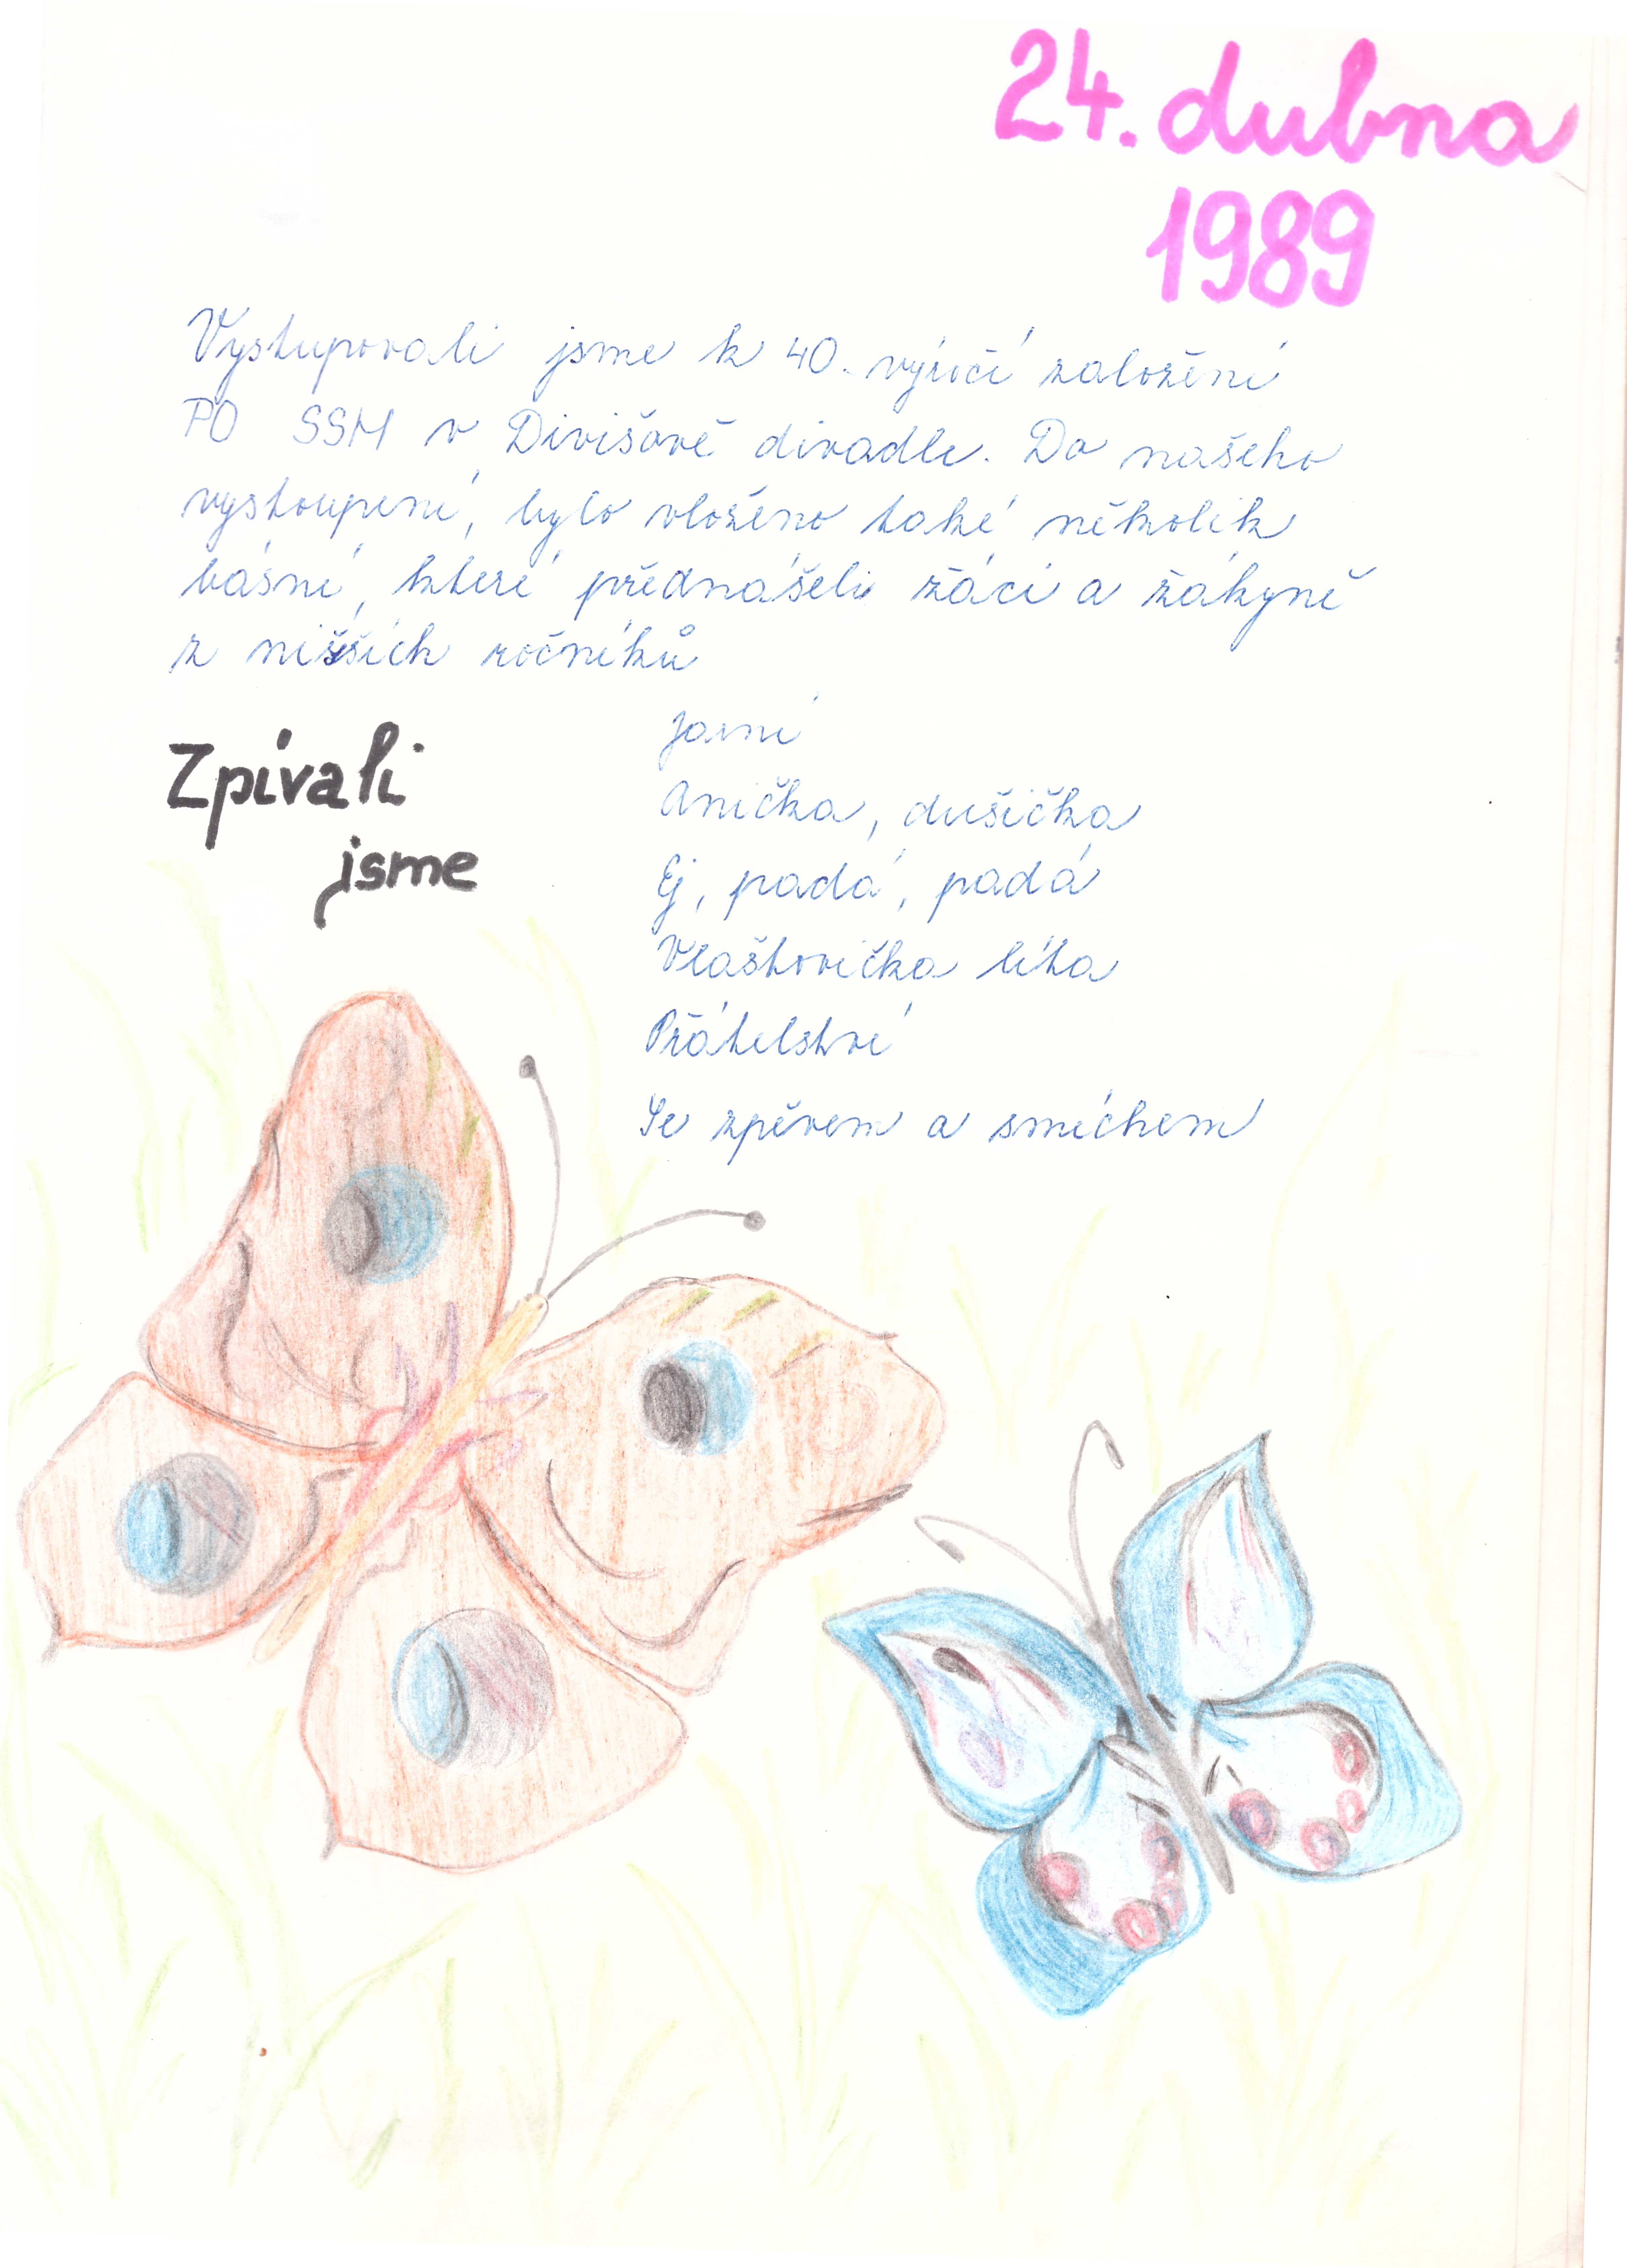 24. dubna
1989
Vystupovali jsme k 40. výročí založení
PO SSM v Divišově divadle. Do našeho
vystoupení, bylo vloženo také několik
básní, které přednášeli žáci a žákyně
z nišších ročníků
Zpívali
jsme
Jarní
Anička, dušička
Ej, padá, padá
Vlaštovička lítá
Přátelství
Se zpěvem a smíchem